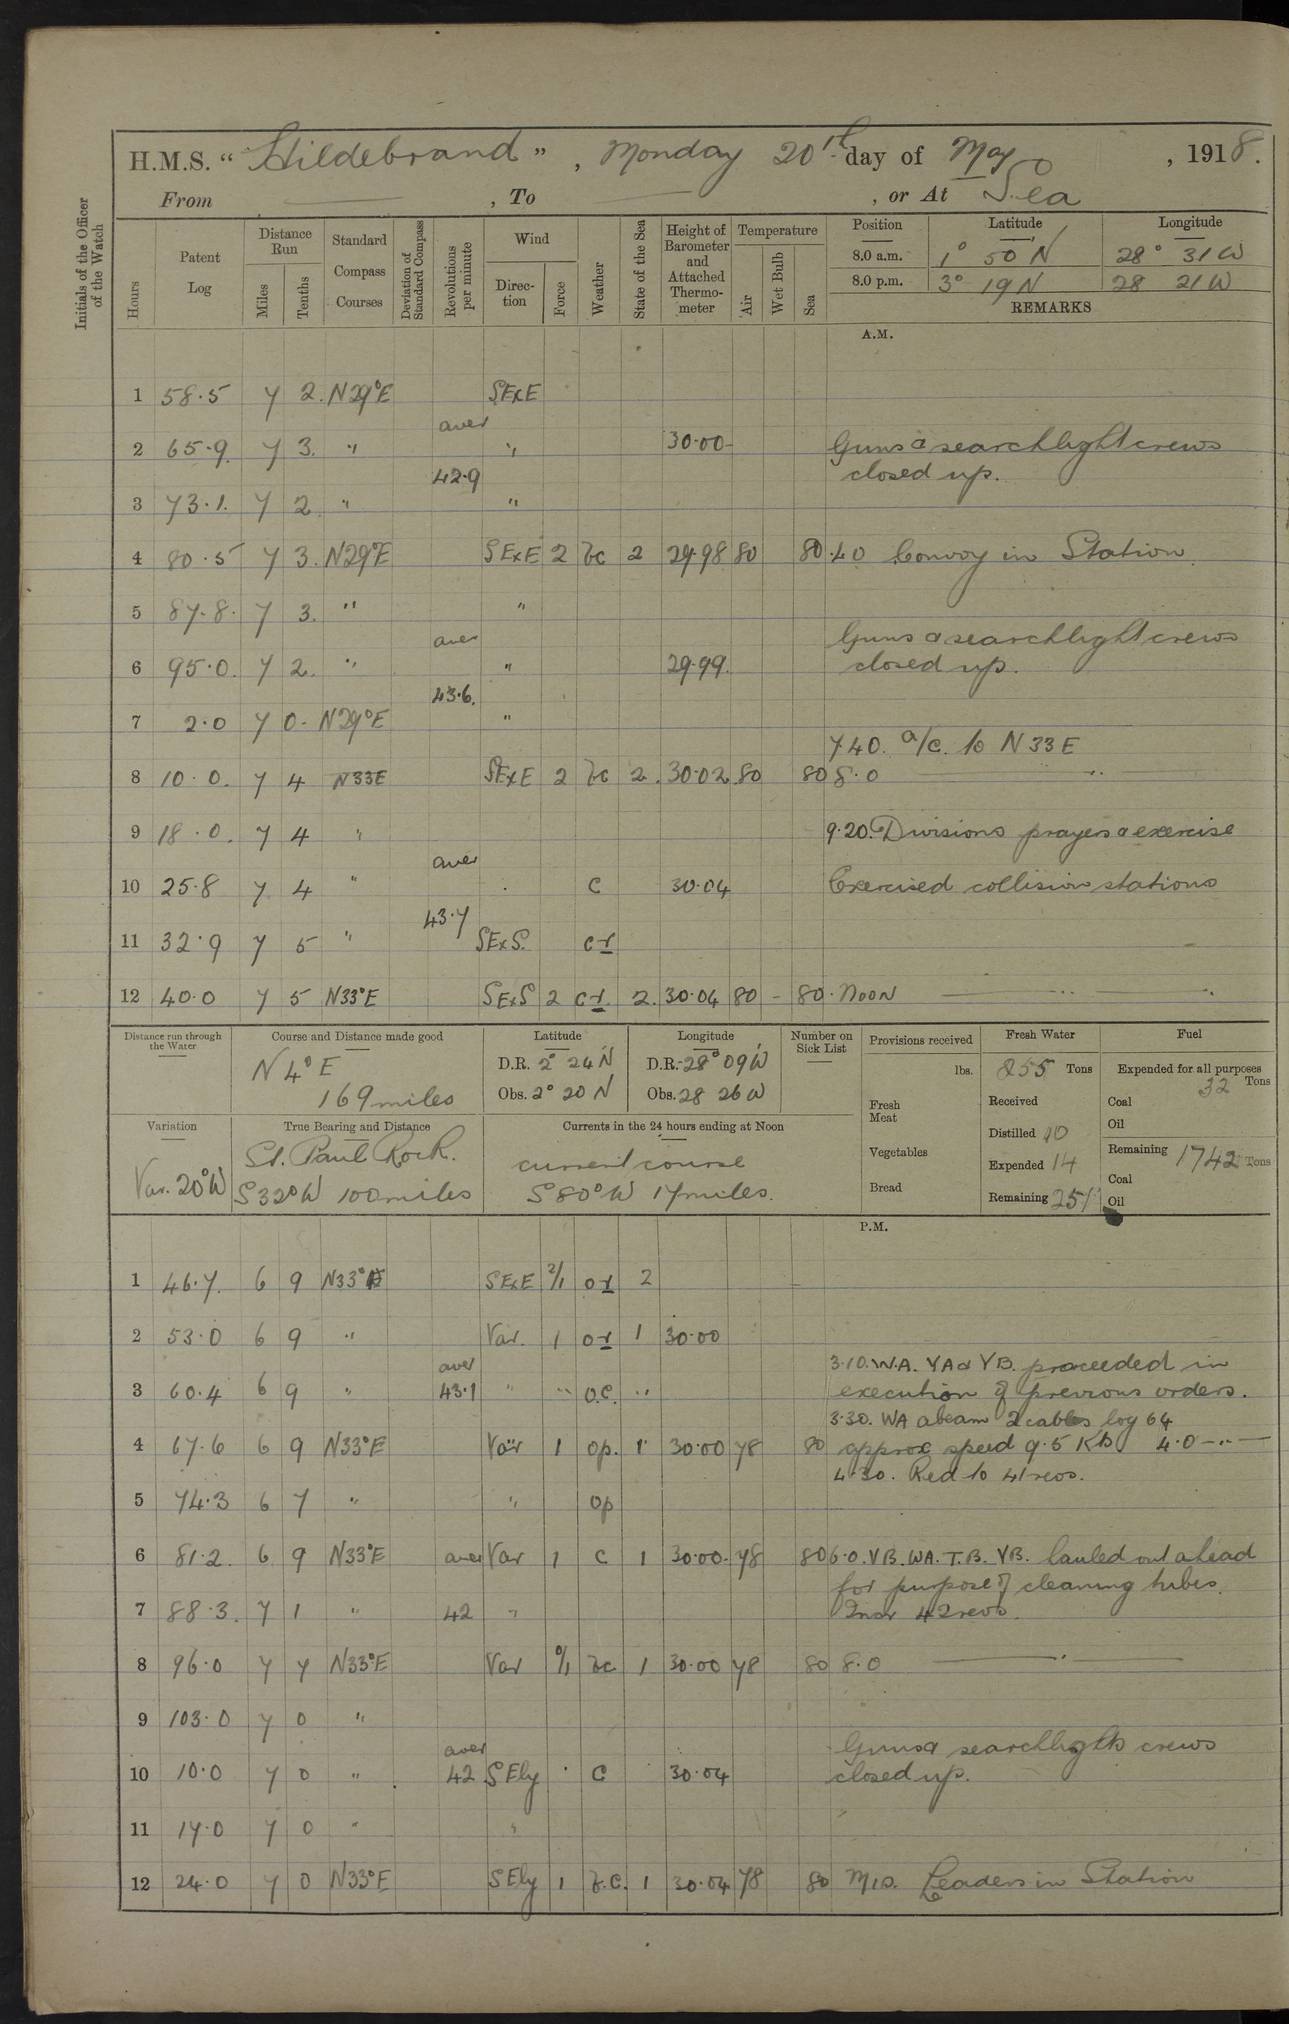 H.M.S. "Hildebrand", Monday 20th day of May, 1918.
From ———, To ———, or At Sea
Initials of the Officer of the Watch
Hours
Patent Log
Distance Run
Miles
Tenths
Standard Compass Courses
Deviation of Standard Compass
Revolutions per minute
Wind
Direction
Force
Weather
State of the Sea
Height of Barometer and Attached Thermometer
Temperature
Air
Wet Bulb
Sea
Position Latitude Longitude
8.0 a.m. 1° 50' N 28° 31 W
8.0 p.m. 3° 19 N 28 21 W
REMARKS
A.M.
1 58.5 7 2. N29°E SExE
aver
2 65.9. 7 3. " " 30.00 Guns & searchlight crews
42.9 closed up.
3 73.1. 7 2 " "
4 80.5 7 3. N29°E SExE 2 bc 2 29.98 80 80 .40 Convoy in Station
5 87.8. 7 3. " "
aver Guns & searchlight crews
6 95.0. 7 2. " " 29.99. closed up.
43.6.
7 2.0 7 0. N29°E "
740. a/c. to N 33 E
8 10.0. 7 4 N33E SExE 2 bc 2. 30.02 80 80 8.0 "
9 18.0. 7 4 " 9.20. Divisions prayers & exercise
aver
10 25.8 7 4 " . C 30.04 Exercised collision stations
43.7
11 32.9 7 5 " SExS. cr
12 40.0 7 5 N33°E SExS 2 cr. 2. 30.04 80 - 80. Noon — " — "
Distance run through the Water
Course and Distance made good
N 4° E
169 miles
Latitude
D.R. 2° 24 N
Obs. 2° 20 N
Longitude
D.R. 28° 09' W
Obs. 28 26 W
Number on Sick List
Provisions received
lbs.
Fresh Meat
Vegetables
Bread
Fresh Water
255 Tons
Received
Distilled 10
Expended 14
Remaining 251
Fuel
Expended for all purposes
32 Tons
Coal
Oil
Remaining 1742 Tons
Coal
Oil
Variation
Var. 20°W
True Bearing and Distance
St. Paul Rock.
S32°W 100 miles
Currents in the 24 hours ending at Noon
current course
S80°W 17 miles.
P.M.
1 46.7. 6 9 N33°E SExE 2/1 or 2
2 53.0 6 9 " Var. 1 or 1 30.00
aver 3.10. W.A. YA & YB. proceeded in
3 60.4 6 9 " 43.1 " " o.c. " execution of previous orders.
3.30. WA abeam 2 cables log 64
4 67.6 6 9 N33°E Var 1 op. 1 30.00 78 80 approx speed 9.5 Kts 4.0 — " —
4.30. Red to 41 revs.
5 74.3 6 7 " " op
6 81.2. 6 9 N33°E aver Var 1 c 1 30.00. 78 80 6.0. VB. WA. T.B. YB. hauled out ahead
for purpose of cleaning tubes.
7 88.3. 7 1 " 42 " Incr 42 revs.
8 96.0 7 7 N33°E Var 0/1 bc 1 30.00 78 80 8.0 — " —
9 103.0 7 0 "
aver Guns & searchlights crews
10 10.0 7 0 " 42 SEly . C . 30.04 closed up.
11 17.0 7 0 " "
12 24.0 7 0 N33°E SEly 1 b.c. 1 30.04 78 80 Mid. Leaders in Station